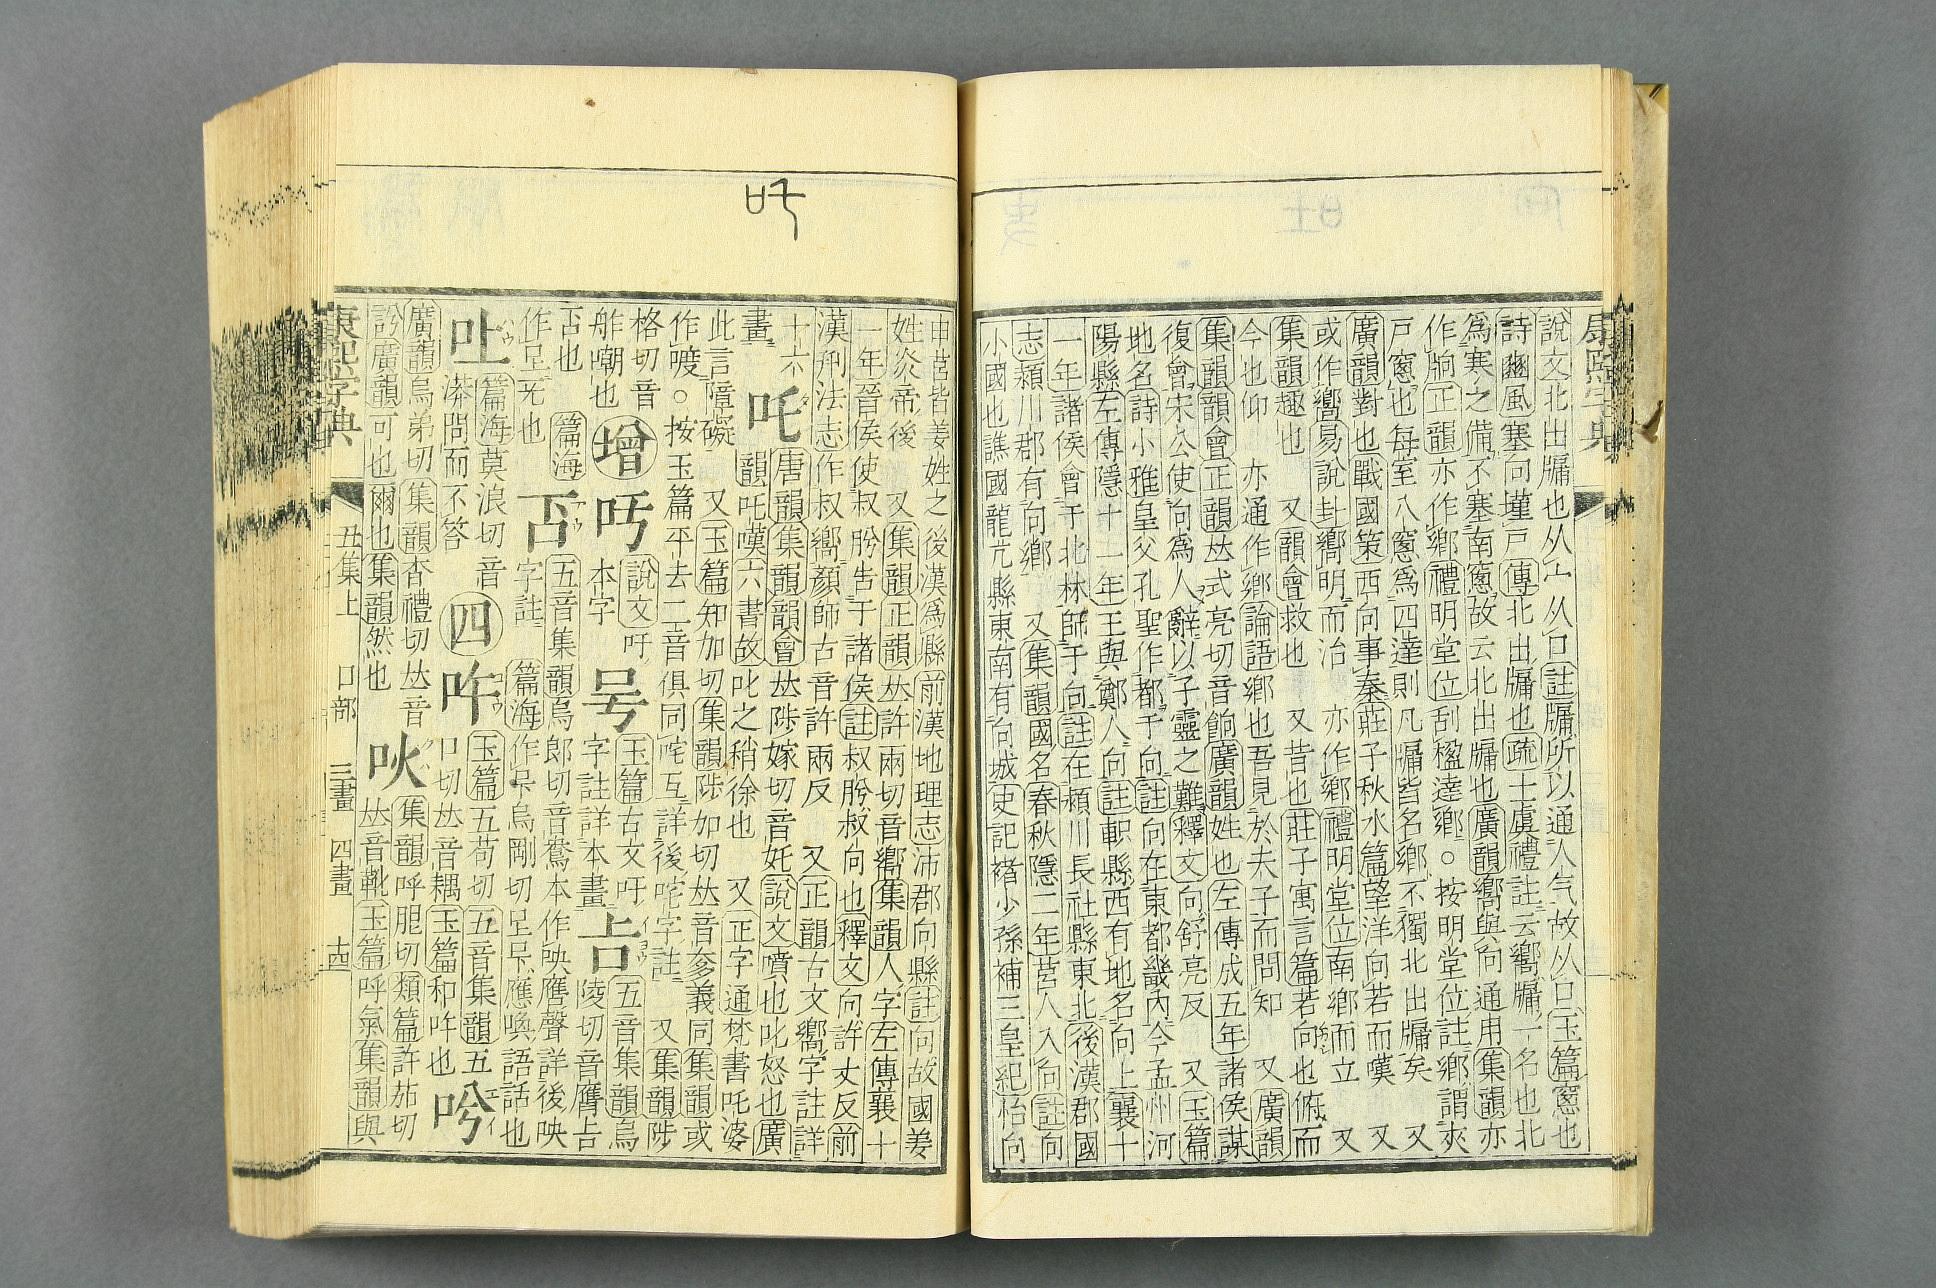 吒
康熙字典
說文北出牖也从宀从口註牖所以通人气故从口玉篇窻也
詩豳風塞向墐戸傳北出牖也疏士虞禮註云嚮牖一名也北
爲寒之備不塞南窻故云北出牖也廣韻嚮與向通用集韻亦
作晌正韻亦作鄉禮明堂位刮楹達鄉。按明堂位註鄉謂夾
戸窻也每室八窻爲四達則凡牖皆名鄉不獨北出牖矣 又
廣韻對也戰國策西向事秦莊子秋水篇望洋向若而嘆 又
或作嚮易說卦嚮明而治 亦作鄉禮明堂位南鄉而立 又
集韻趣也 又韻會救也 又昔也莊子寓言篇若向也俯而
今也仰 亦通作鄉論語鄉也吾見於夫子而問知 又廣韻
集韻韻會正韻𠀤式亮切音餉廣韻姓也左傳成五年諸侯謀
復會宋公使向爲人辭以子靈之難釋文向舒亮反 又玉篇
地名詩小雅皇父孔聖作都于向註向在東都畿內今孟州河
陽縣左傳隱十一年王與鄭人向註軹縣西有地名向上襄十
一年諸侯會于北林師于向註在潁川長社縣東北後漢郡國
志潁川郡有向鄉 又集韻國名春秋隱二年莒人入向註向
小國也譙國龍亢縣東南有向城史記褚少孫補三皇紀怡向
申莒皆姜姓之後漢爲縣前漢地理志沛郡向縣註向故國姜
姓炎帝後 又集韻正韻𠀤許兩切音嚮集韻人字左傳襄十
一年晉侯使叔肸吿于諸侯註叔肸叔向也釋文向許丈反前
漢刑法志作叔嚮顏師古音許兩反 又正韻古文嚮字註詳
十六
畫 吒 唐韻集韻韻會𠀤陟嫁切音奼說文噴也叱怒也廣
韻吒嘆六書故叱之稍徐也 又正字通梵書吒婆
此言礙 又玉篇知加切集韻陟加切𠀤音奓義同集韻或
作喥。按玉篇平去二音俱同咤互詳後咤字註 又集韻陟
格切音
舴嘲也 增 吁 說文吁本字 号 玉篇古文吁字註詳本畫 𠮷 五音集韻烏陵切音膺
否也 篇海 否字註 五音集韻烏郎切音鴦本作咉譍聲詳後咉
作呈无也 篇海作呈烏剛切呈應喚語話也
吐 篇海莫浪切音漭問而不答 四 吘 玉篇五苟切五音集韻五口切𠀤音耦玉篇和吘也 吟
廣韻烏弟切集韻杳禮切𠀤音
訡廣韻可也爾也集韻然也 吙 集韻呼肥切類篇許茄切𠀤音靴玉篇呼氣集韻與
康熙字典 丑集上 口部 三畫 四畫 十四